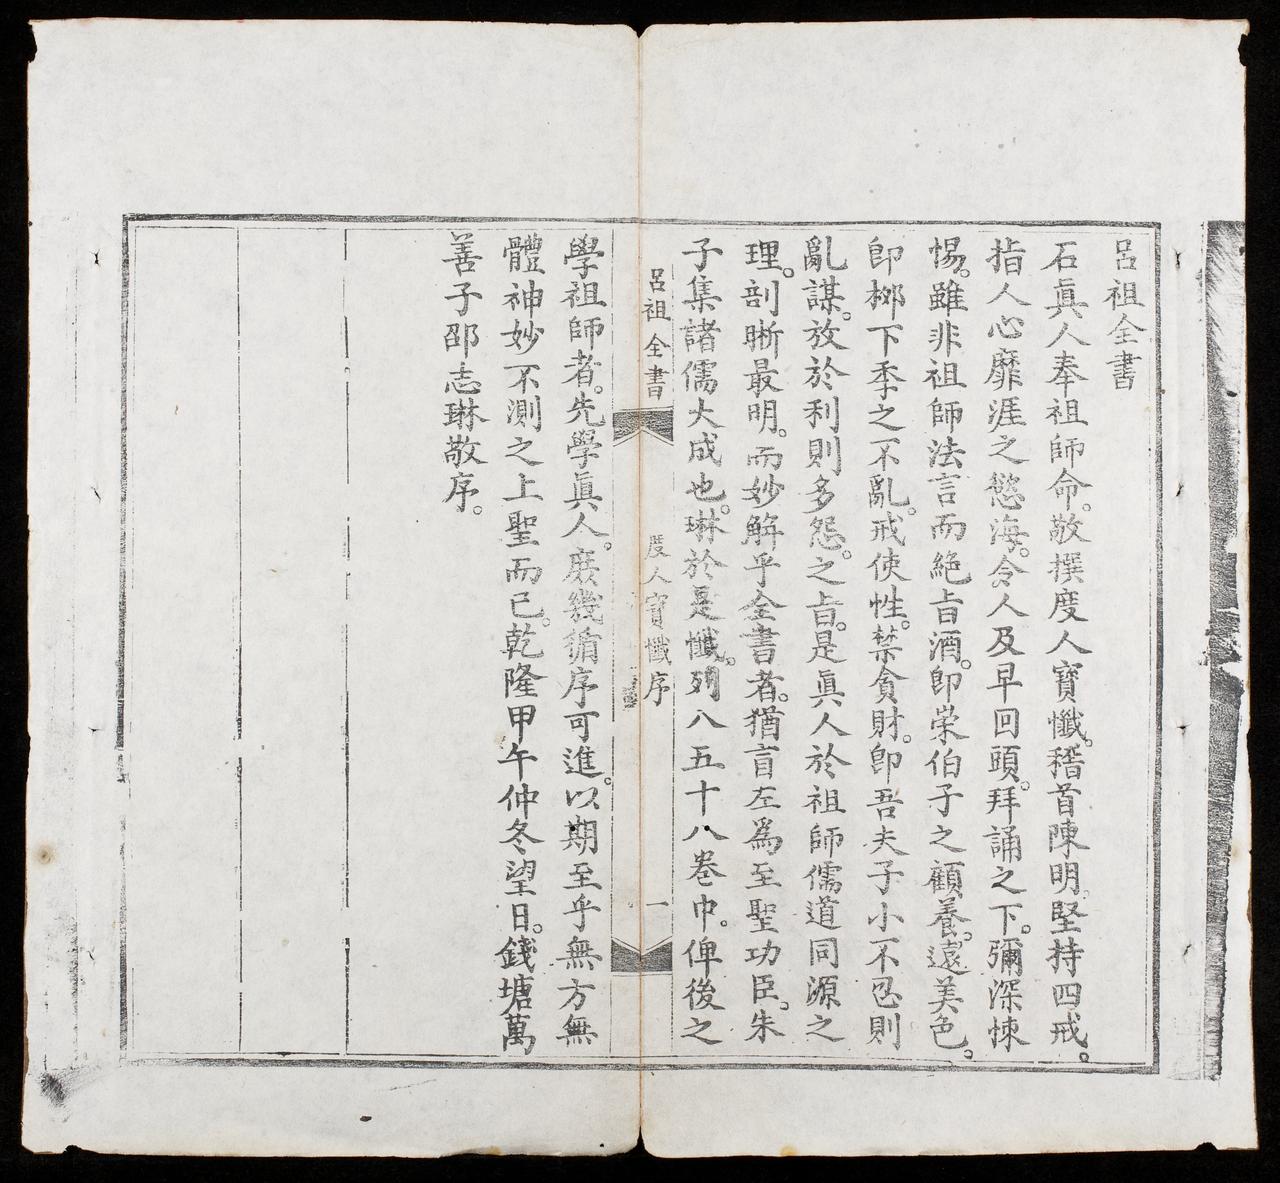 呂祖全書
石眞人奉祖師命。敬撰度人寶懺。稽首陳明。堅持四戒。
指人心靡涯之慾海。令人及早回頭。拜誦之下。彌深悚
惕。雖非祖師法言而絕旨酒。卽崇伯子之顧養。遠美色。
卽桺下季之不亂。戒使性。禁貪財。卽吾夫子小不忍則
亂謀。放於利則多怨。之旨。是眞人於祖師儒道同源之
理。剖晰最明。而妙解乎全書者。猶盲左爲至聖功臣。朱
子集諸儒大成也。琳於是懺。列八五十八卷中。俾後之
呂祖全書
度人寶懺序
一
學祖師者。先學眞人。庶幾循序可進。以期至乎無方無
體神妙不測之上聖而已。乾隆甲午仲冬望日。錢塘萬
善子邵志琳敬序。